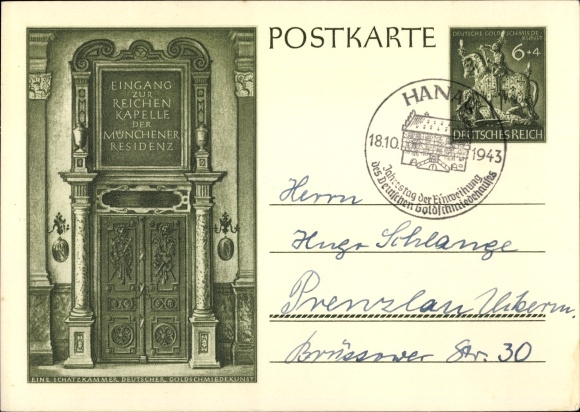 POSTKARTE
DEUTSCHE GOLDSCHMIEDE-
KUNST
6+4
DEUTSCHES REICH
HANAU
18.10. 1943
Jahrestag der Einweihung
des Deutschen Goldschmiedehauses
EINGANG
ZUR
REICHEN
KAPELLE
DER
MÜNCHENER
RESIDENZ
EINE SCHATZKAMMER DEUTSCHER GOLDSCHMIEDEKUNST
Herrn
Hugo Schlange
Prenzlau Uckerm.
Brüssower Str. 30